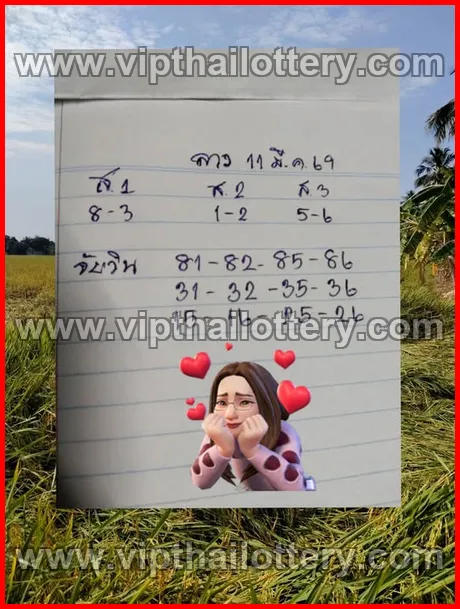 www.vipthailottery.com
ลาว 11 มี.ค.69
ส.1 ส.2 ส.3
8-3 1-2 5-6
จับวิน 81-82-85-86
31-32-35-36
15-16-25-26
www.vipthailottery.com
www.vipthailottery.com